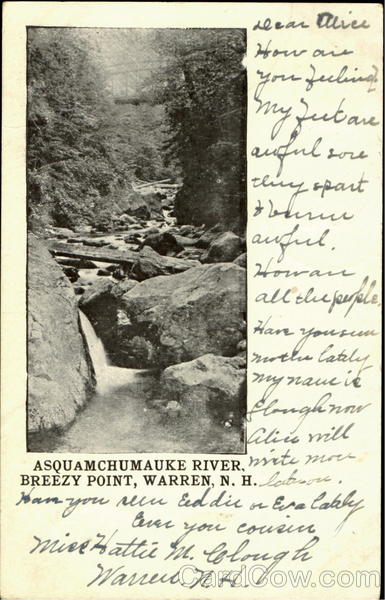 Dear Alice
How are
you feeling
My feet are
awful sore
they
& burn
awful.
How are
all the people
Have you seen
mother lately
My name is
Clough now
Alice will
write more
later on.
ASQUAMCHUMAUKE RIVER,
BREEZY POINT, WARREN, N. H.
Have you seen Eddie or Eva lately
Ever you cousin
Miss Hattie M. Clough
Warren N.H.
CardCow.com